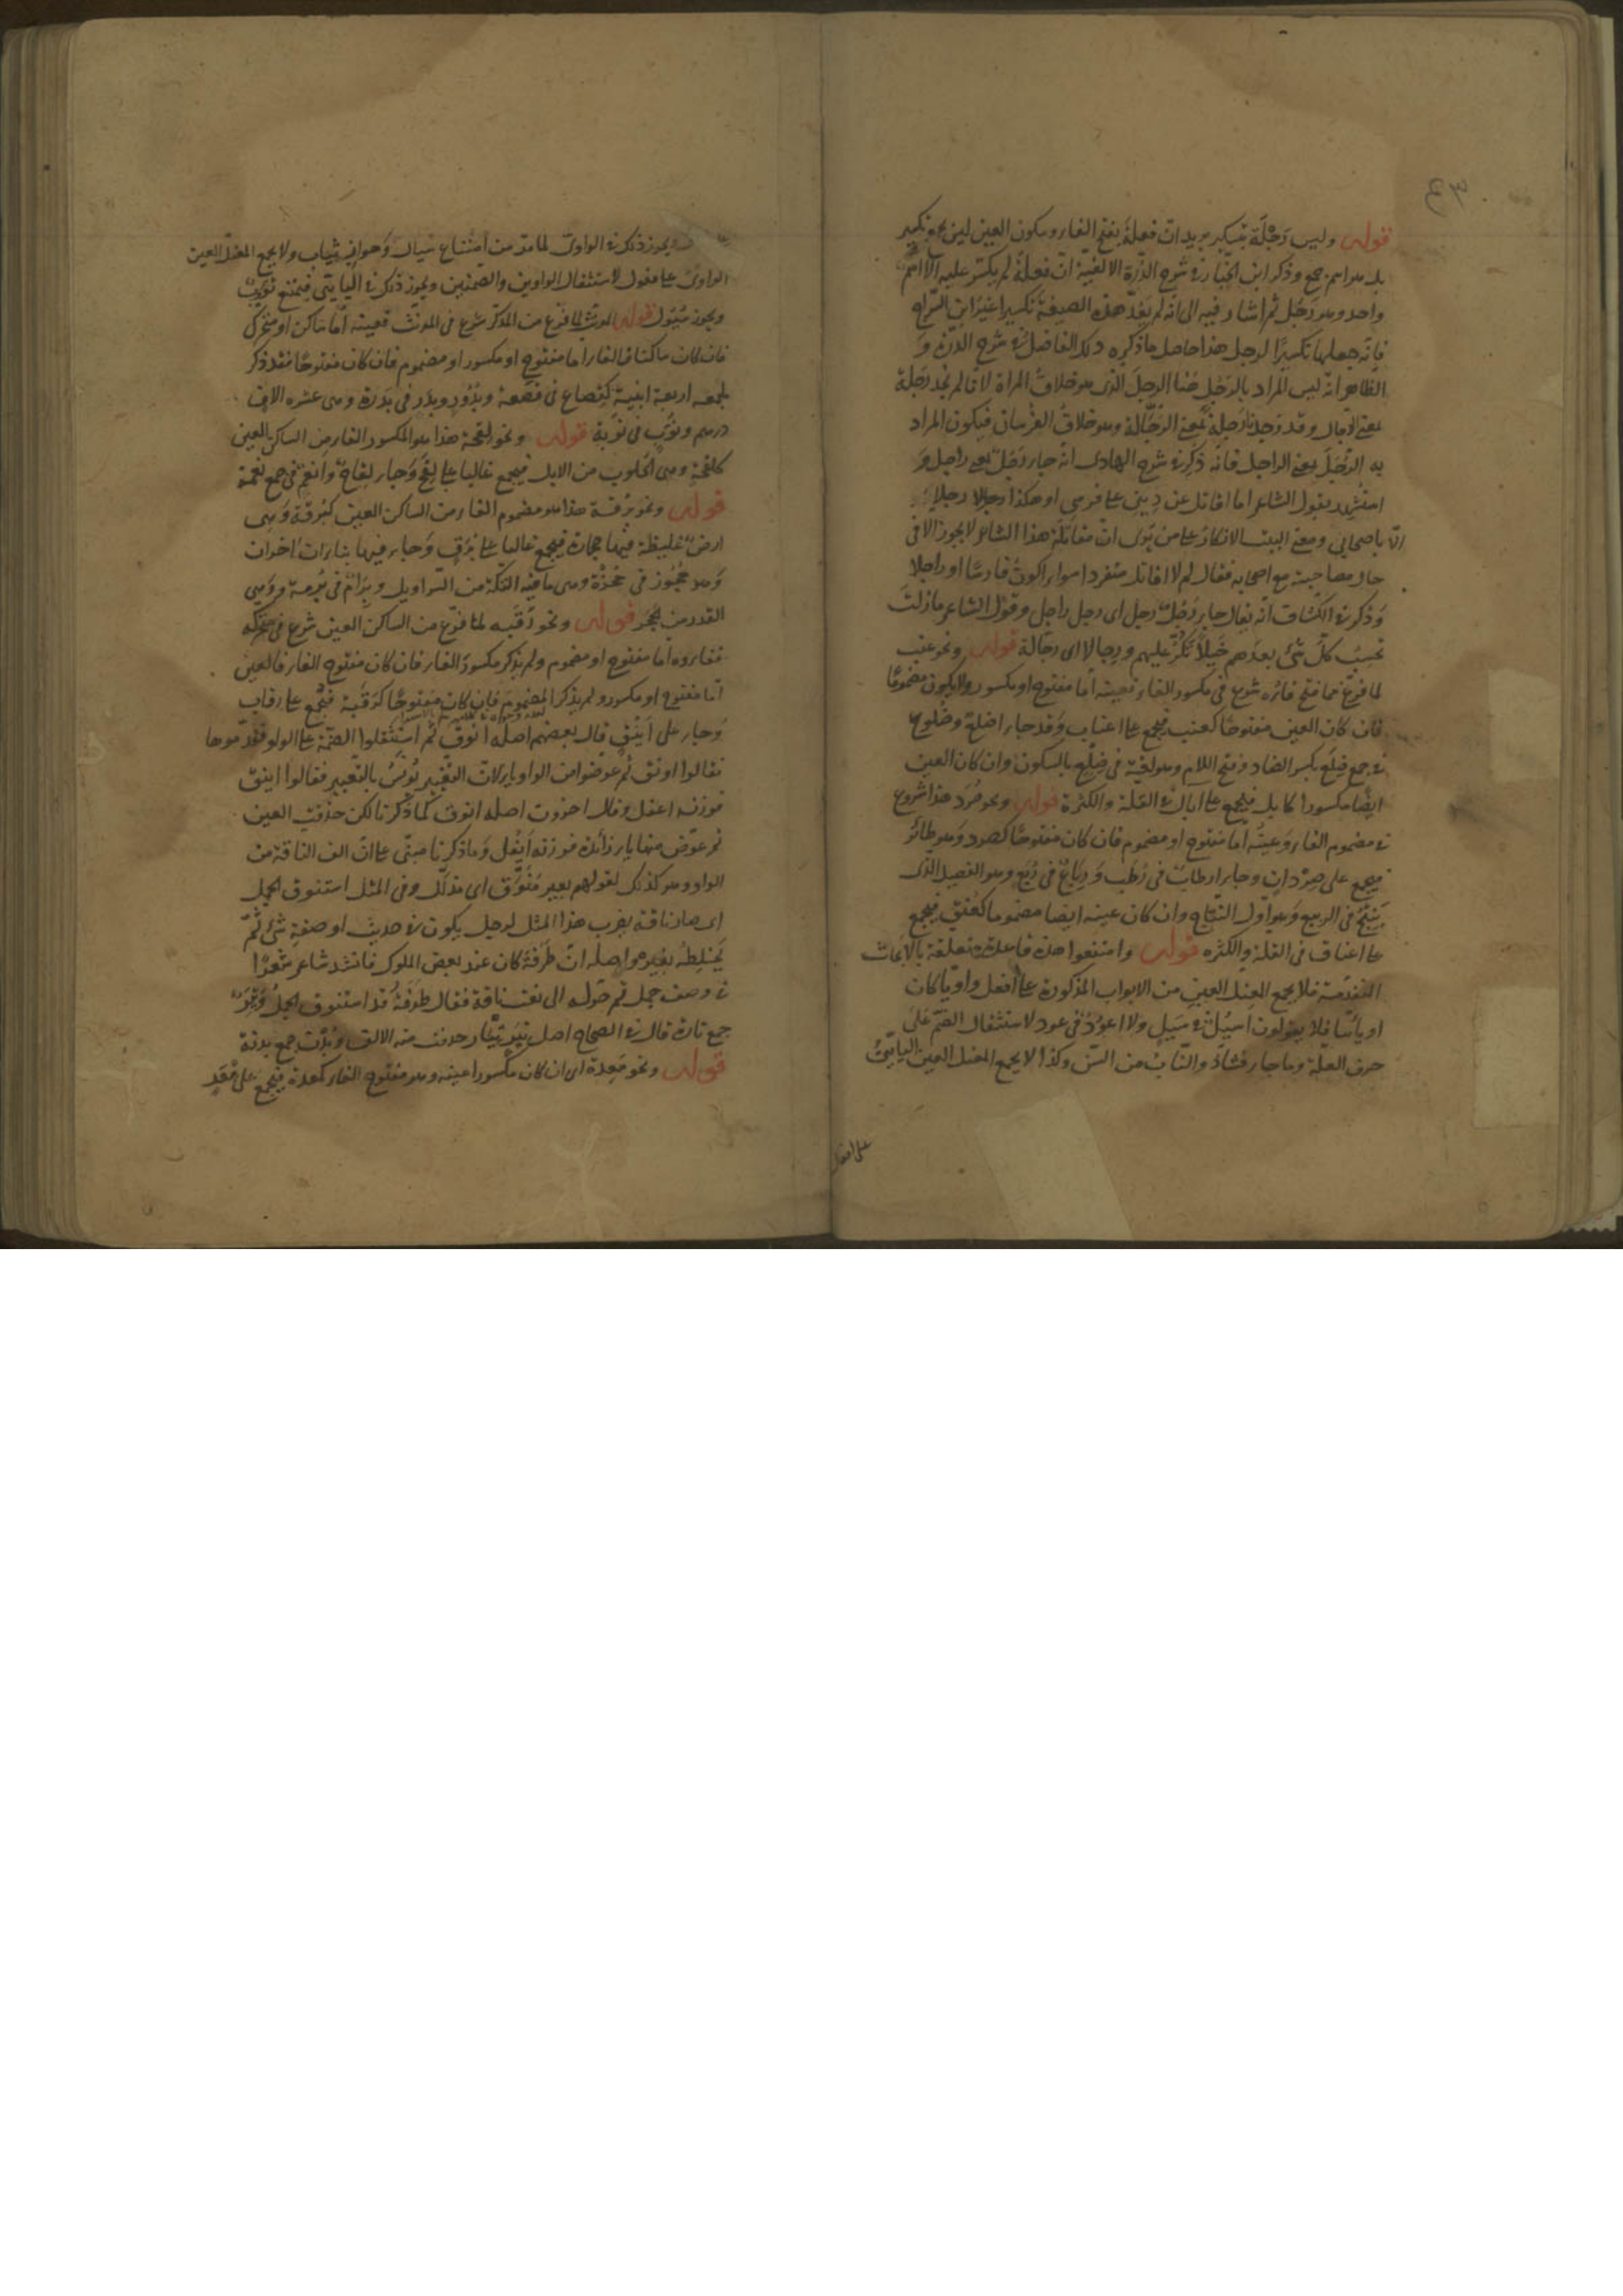 قوله وليس رَجْلَة بتكسير يريد ان فعلة بفتح الفاء وسكون العين ليس بجمع تكسير
بل هو اسم جمع وذكر ابن الخباز في شرح الدرة الالفية ان فعلة لم يكسر عليه الا اسم
واحد وهو رَجُل ثم اشار فيه الى انه لم يعد هذه الصيغة تكسيرا غير ابن السراج
فانه جعلها تكسيرًا لرجل هذا حاصل ما ذكره ذلك الفاضل في شرح الدرة و
الظاهر انه ليس المراد بالرجل هنا الرجل الذى هو خلاف المراة لانا لم نجد رجلة
بمعنى الرجال وقد وجدنا رجلة بمعنى الرجّالة وهو خلاف الفرسان فيكون المراد
به الرَّجُلَ بمعنى الراجل فانه ذكر في شرح الهادى انه جاء رَجُل بمعنى راجل و
استشهد بقول الشاعر اما اقاتل عن ديني على فرسي او هكذا رجلا
الّا باصحابي ومعنى البيت الانكار على من يرى ان مقاتلة هذا الشاعر لا يجوز الا في
حال مصاحبته مع اصحابه فقال لم لا اقاتل منفردا سواء اكون فارسًا او راجلا
وذكر في الكشاف انه يقال جاء رَجُل رجل اى رجل راجل وقول الشاعر ما زلت
تحسب كل شئ بعدهم خيلًا تكرّ عليهم ورجالا اى رجالة قوله ونحو عنب
لما فرغ مما فتح فاؤه شرع في مكسور الفاء فعينه اما مفتوح او مكسور ولا يكون مضموما
فان كان العين مفتوحا كعنب فيجمع على اعناب وقد جاء اضلع وضلوع
في جمع ضِلَع بكسر الضاد وفتح اللام وهو لغة في ضِلْع بالسكون وان كان العين
ايضًا مكسورا كابل فيجمع على ابال في القلة والكثرة قوله ونحو صُرَد هذا شروع
في مضموم الفاء وعينه اما مفتوح او مضموم فان كان مفتوحًا كصرد وهو طائر
فيجمع على صِرْدان وجاء ارطاب في رُطَب ورِباع في رُبَع وهو الفصيل الذى
يُنْتَج في الربيع وهو اول النتاج وان كان عينه ايضا مضموما كعنق فيجمع
على اعناق في القلة والكثره قوله وامتنعوا هذه قاعدة متعلقة بالابحاث
المتقدمة فلا يجمع المعتل العين من الابواب المذكورة على أفعل واويا كان
او يائيًا فلا يقولون اسيُل في سَيل ولا اعوُد في عود لاستثقال الضم على
حرف العلة وما جاء فشاذ والناب من السن وكذا لا يجمع المعتل العين اليائي
على فعال
ويجوز ذلك في الواوى لما مر من امتناع سيال وجواز ثياب ولا يجمع المعتل العين
الواوى على فعول لاستثقال الواوين والضمتين ويجوز ذلك في اليائي فيمتنع ثووب
ويجوز سُيُول قوله المؤنث لما فرغ من المذكر شرع في المؤنث فعينه اما ساكن او متحرك
فان كان ساكنا فالفاء اما مفتوح او مكسور او مضموم فان كان مفتوحًا فقد ذكر
لجمعه اربعة ابنية كقصاع في قصعة وبُدُور وبِدَر في بَدْرة وهي عشره الاف
درهم ونُوَب في نَوبة قوله ونحو لقحة هذا هو المكسور الفاء من الساكن العين
كلقحة وهي الحلوب من الابل فيجمع غالبا على لِقَح وجاء لِقاح وانعُم في جمع نعمة
قوله ونحو بُرقة هذا هو مضموم الفاء من الساكن العين كبُرقة وهي
ارض غليظة فيها حجارة فيجمع غالبا على بُرَق وجاء فيها بناءان اخران
وهو حُجُوز في حُجْزة وهي ما فيه التكة من السراويل وبِرام في بُرمة وهي
القدر من الحجر قوله ونحو رَقَبه لما فرغ من الساكن العين شرع في متحركه
ففاؤه اما مفتوح او مضموم ولم يذكر مكسور الفاء فان كان مفتوح الفاء فالعين
اما مفتوح او مكسور ولم يذكر المضموم فان كان مفتوحًا كرقبة فيجمع على رقاب
وجاء على أينُق قال بعضهم اصله انوُق ثم استثقلوا الضمة على الواو فقدموها
فقالوا اونق ثم عوضوا من الواو ياء لان التغيير يونس بالتغيير فقالوا اينق
فوزنه اعفل وقال اخرون اصله انوق كما ذكرنا لكن حذفت العين
ثم عوض منها ياء زائدة فوزنه أيفُل وما ذكرنا مبنى على ان الف الناقة من
الواو وهو كذلك لقولهم بعير مُنَوَّق اى مذلّل وفى المثل استنوق الجمل
اى صار ناقة يضرب هذا المثل لرجل يكون في حديث او صفة شئ ثم
يَخلِطُه بغيره واصله ان طَرَفَة كان عند بعض الملوك فانشد شاعر شعرًا
في وصف جمل ثم حوله الى نعت ناقة فقال طرفة قد استنوق الجمل وتِيَر
جمع تارة قال في الصحاح اصل تِيَر تِيَار حذفت منه الالف وبُدْن جمع بدنة
قوله ونحو مَعِدة اى ان كان مكسورا عينه وهو مفتوح الفاء كمعدة فيجمع على مِعَدٍ